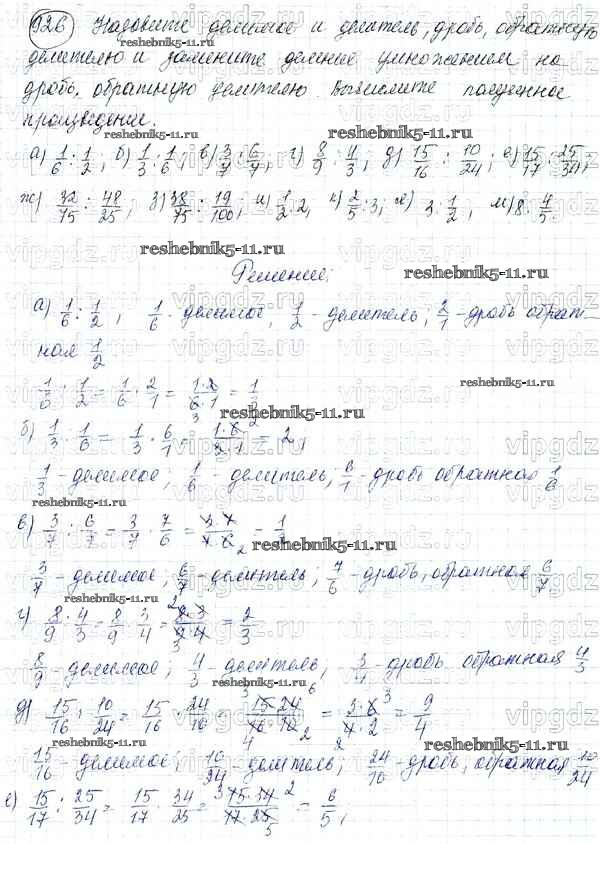 926 Назовите делимое и делитель, дробь, обратную
делителю и замените деление умножением на
дробь, обратную делителю. Вычислите полученное
произведение.
reshebnik5-11.ru
а) 1/6 : 1/2; б) 1/3 : 1/6; в) 3/7 : 6/7; г) 8/9 : 4/3; д) 15/16 : 10/24; е) 15/17 : 25/34;
ж) 32/75 : 48/25; з) 38/75 : 19/100; и) 1/2 : 2; к) 2/5 : 3; л) 3 : 1/2; м) 8 : 4/5.
reshebnik5-11.ru
Решение:
reshebnik5-11.ru
а) 1/6 : 1/2; 1/6 - делимое; 1/2 - делитель; 2/1 - дробь обрат-
ная 1/2
1/6 : 1/2 = 1/6 · 2/1 = 1·2/6·1 = 1/3
reshebnik5-11.ru
б) 1/3 : 1/6 = 1/3 · 6/1 = 1·6/3·1 = 2;
1/3 - делимое; 1/6 - делитель; 6/1 - дробь обратная 1/6
reshebnik5-11.ru
в) 3/7 : 6/7 = 3/7 · 7/6 = 3·7/7·6 = 1/2
reshebnik5-11.ru
3/7 - делимое; 6/7 - делитель; 7/6 - дробь, обратная 6/7
reshebnik5-11.ru
г) 8/9 : 4/3 = 8/9 · 3/4 = 8·3/9·4 = 2/3
8/9 - делимое; 4/3 - делитель; 3/4 - дробь обратная 4/3
reshebnik5-11.ru
д) 15/16 : 10/24 = 15/16 · 24/10 = 15·24/16·10 = 3·6/4·2 = 9/4
reshebnik5-11.ru
15/16 - делимое; 10/24 - делитель; 24/10 - дробь, обратная 10/24
е) 15/17 : 25/34 = 15/17 · 34/25 = 15·34/17·25 = 6/5;